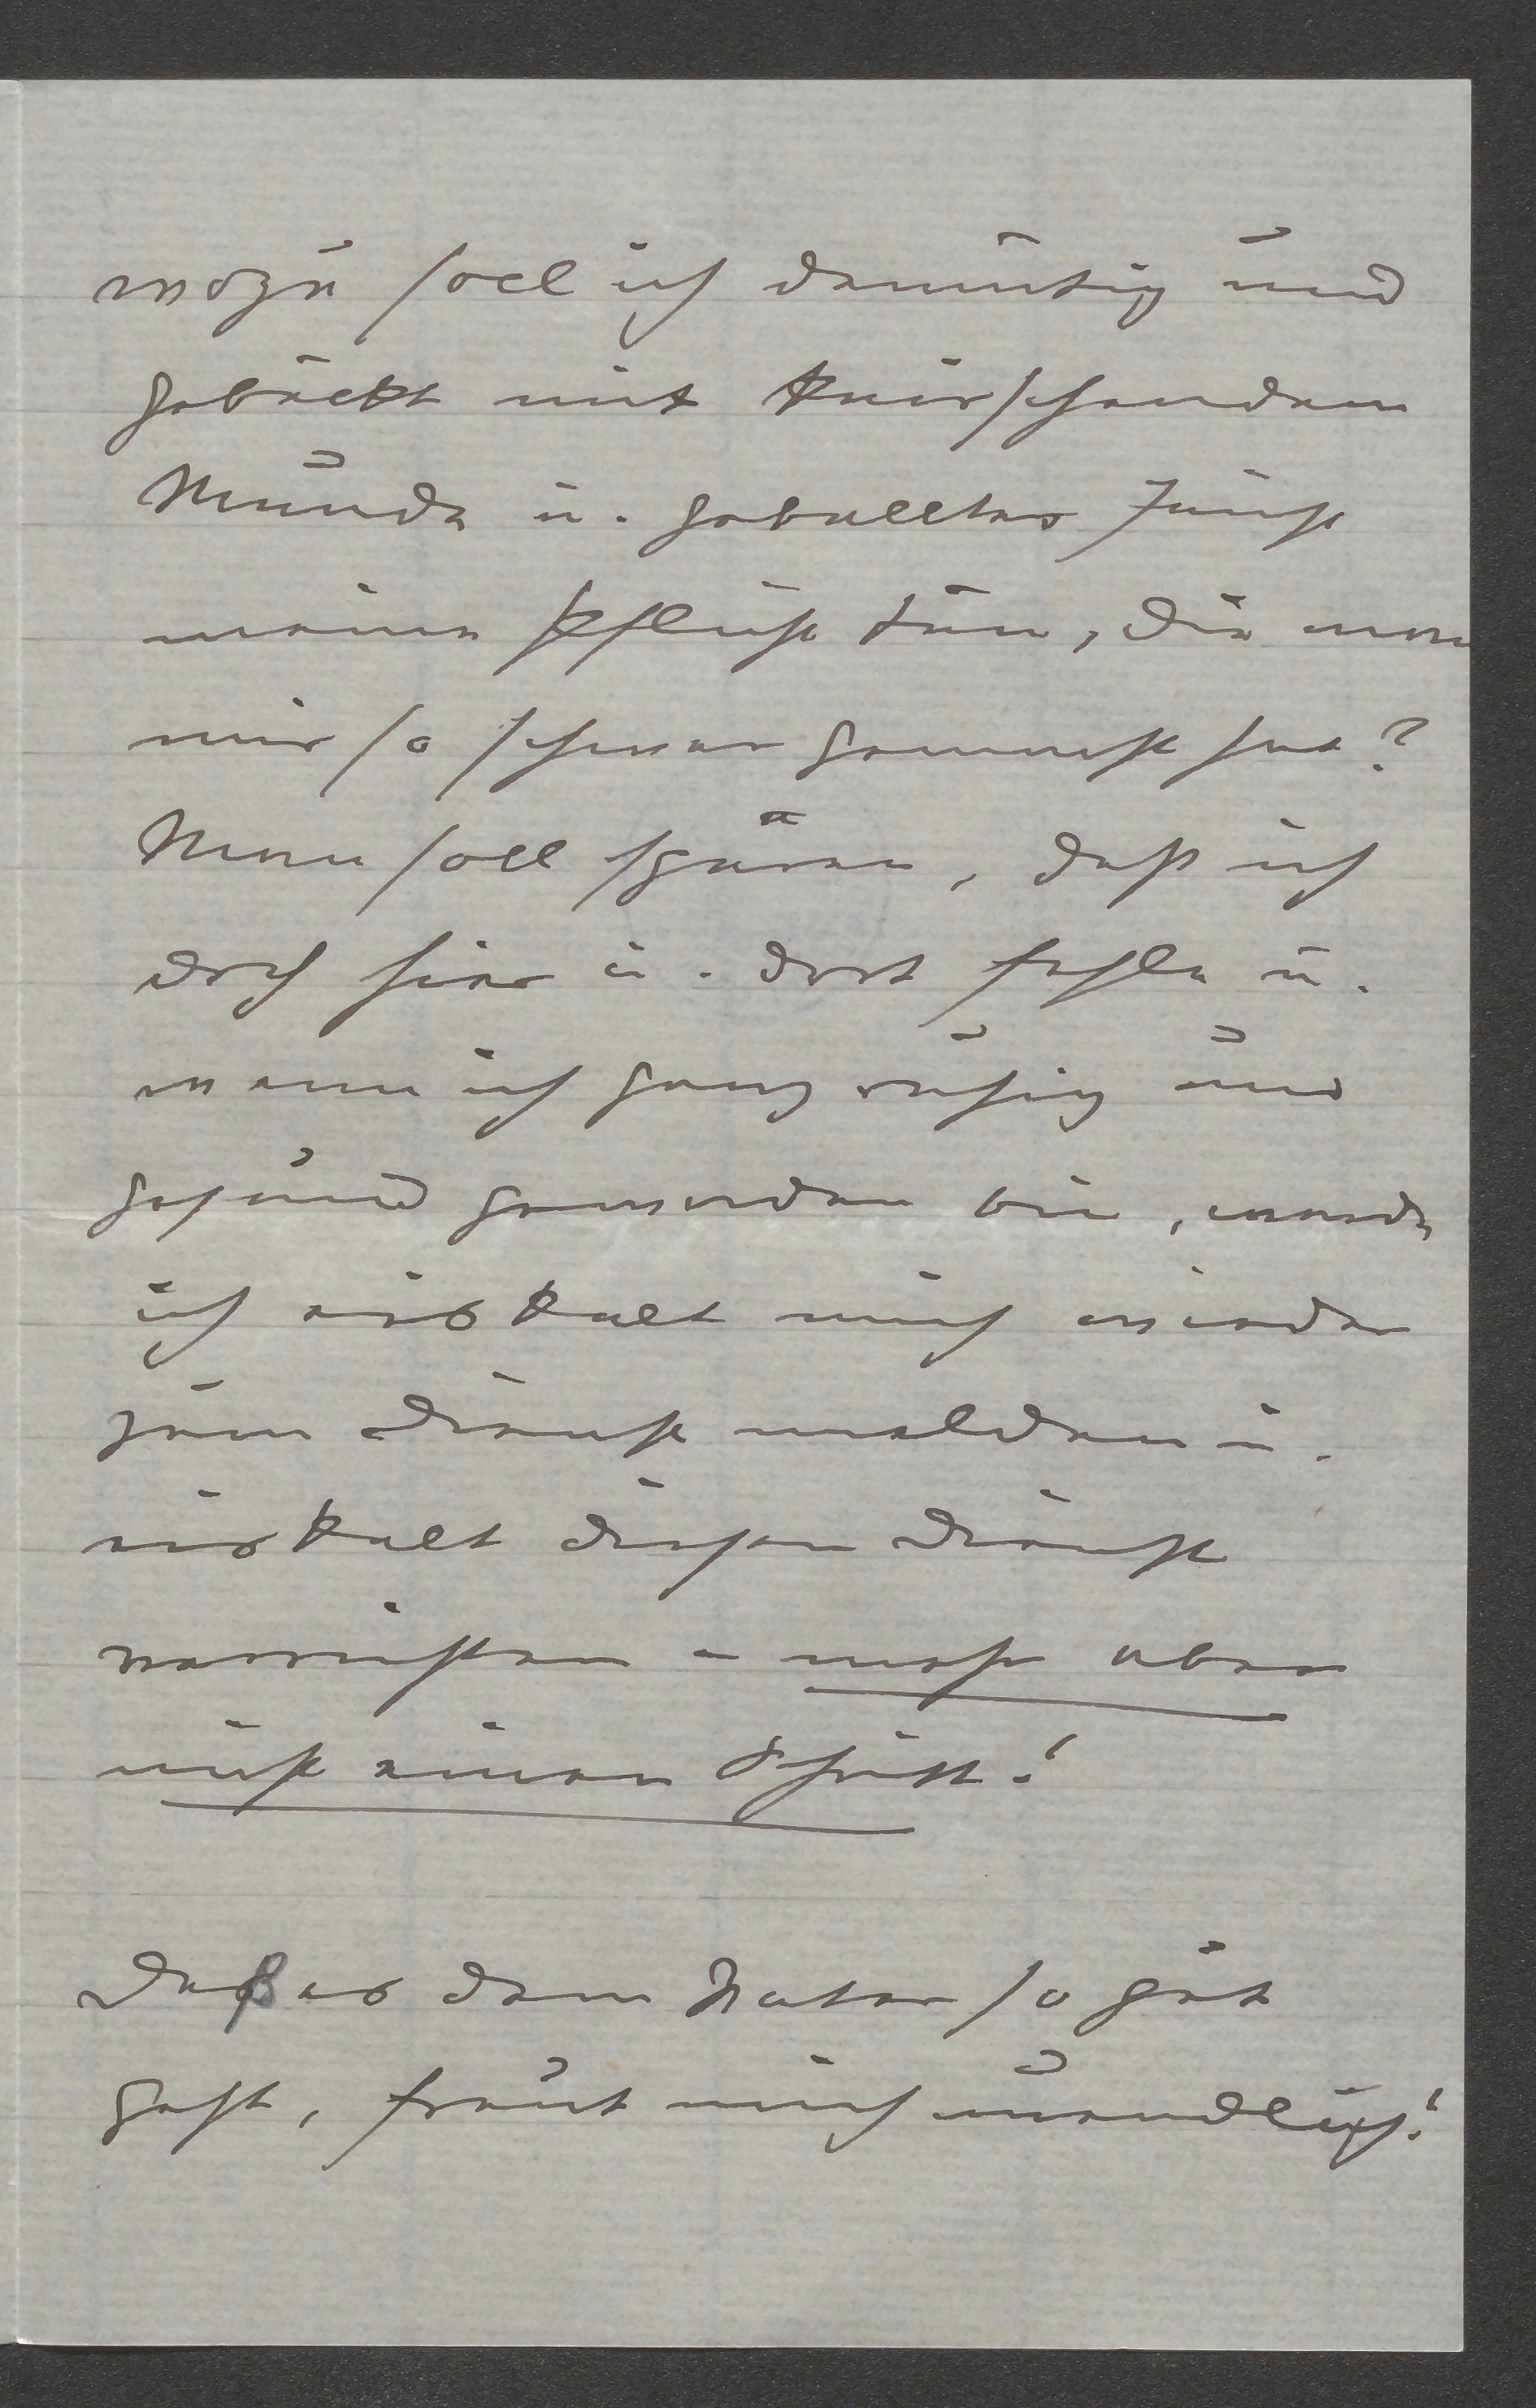 wozu soll ich demütig und
gebückt mit knirschendem
Munde u. geballter Faust
meine Pflicht tun, die man
mir so schwer gemacht hat?
Man soll spüren, daß ich
doch hier u. dort fehle u.
wenn ich ganz ruhig und
gesund geworden bin, werde
ich eiskalt mich wieder
zum Dienst melden u.
eiskalt diesen Dienst
verrichten – mehr aber
nicht einen Schritt!
Daß es dem Vater so gut
geht, freut mich unendlich!